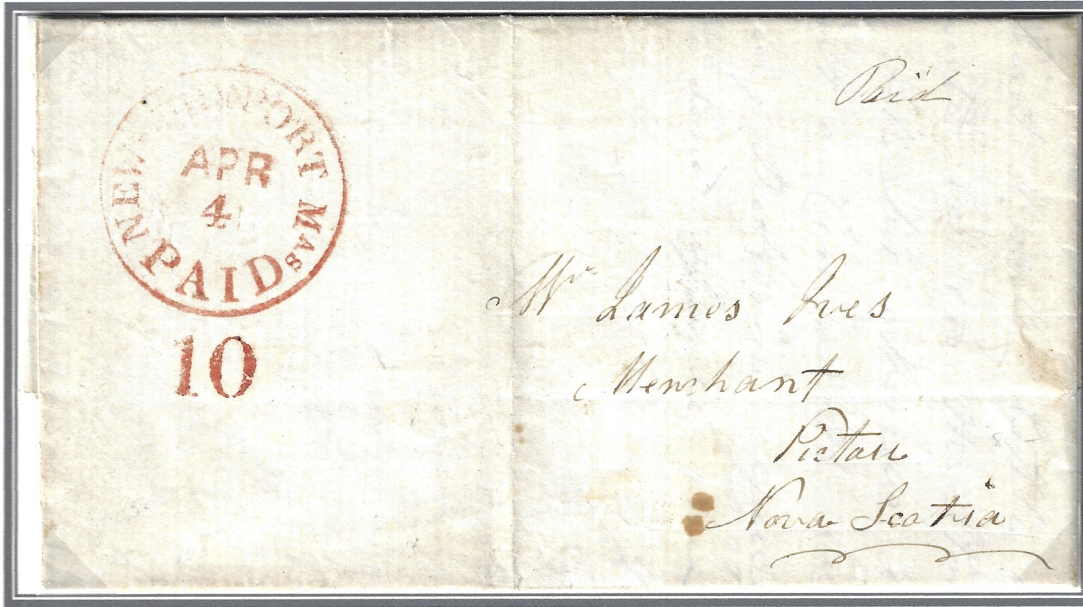 NEWBURYPORT MAS
APR
4
PAID
10
Paid
Mr James Ives
Merchant
Pictou
Nova Scotia